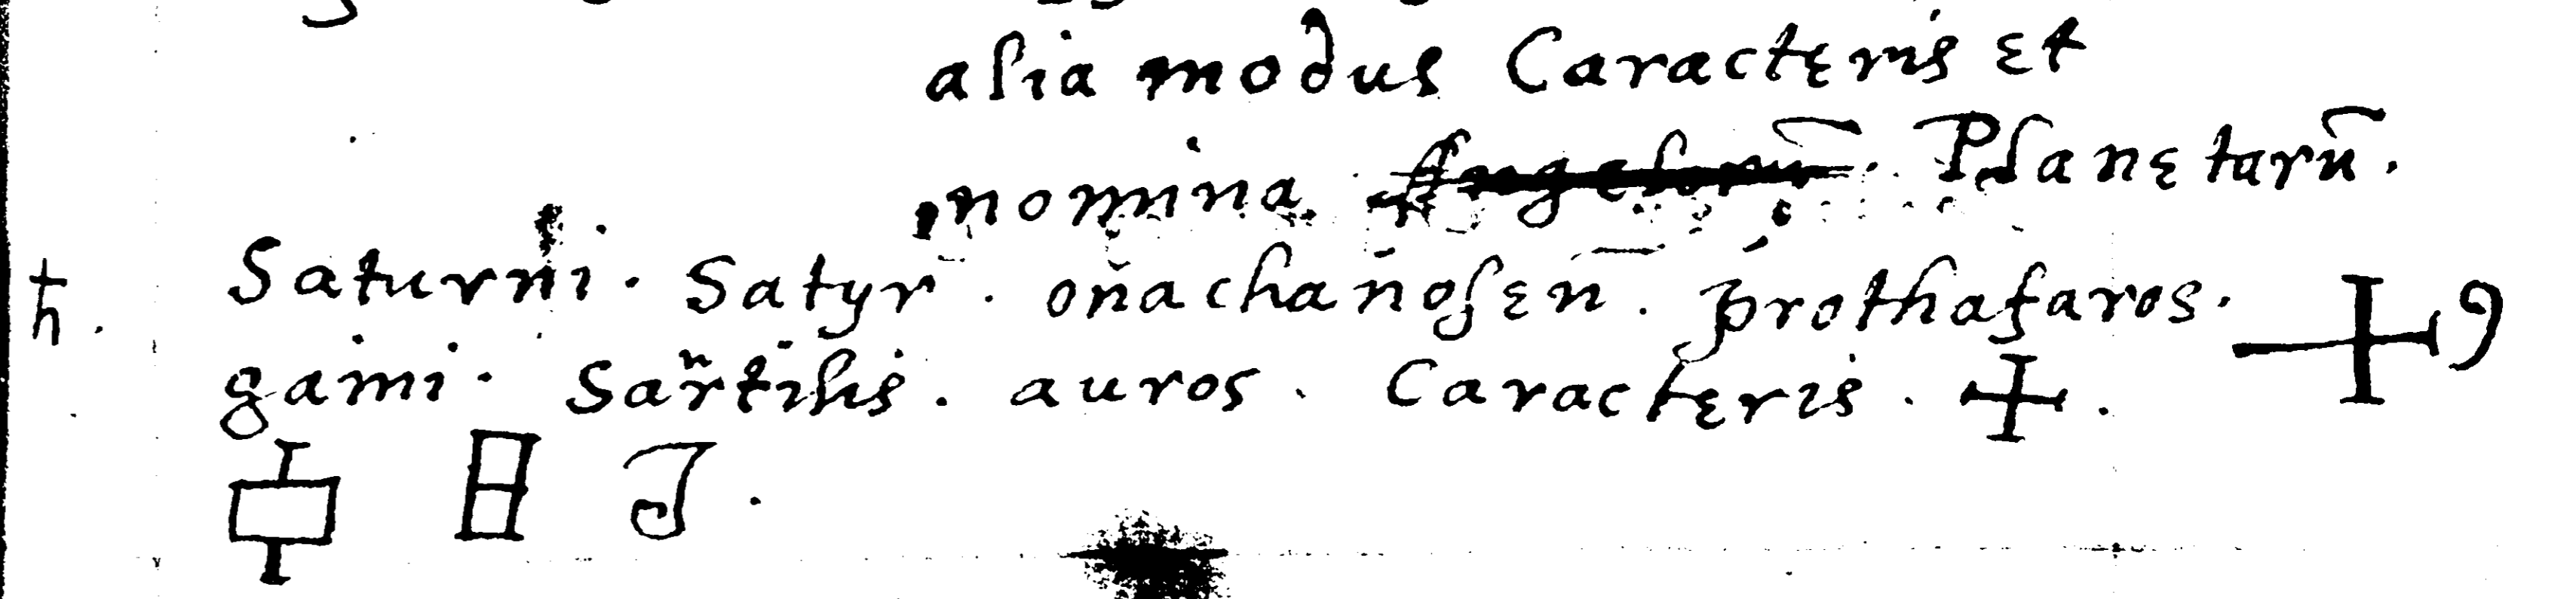 alia modus Caracteris et
nomina Angelorū. Planetarū.
♄. Saturni. Satyr. oñachañosen̄. prothafaros.
gaimi. Sar̃tilis. auros. Caracteris.